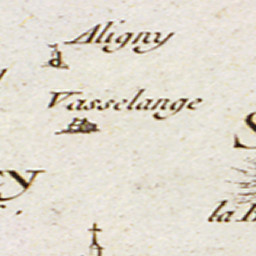 Aligny
Vasselange
la